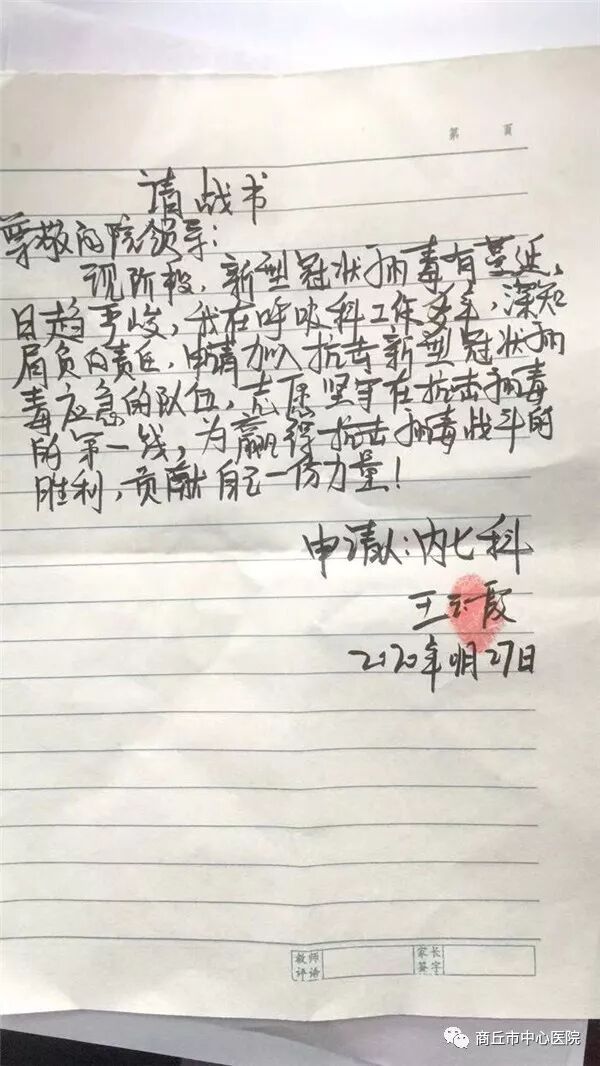 第 页
请战书
尊敬的院领导：
现阶段，新型冠状病毒有蔓延，
日趋严峻，我在呼吸科工作多年，深知
肩负的责任，申请加入抗击新型冠状病
毒应急的队伍，志愿坚守在抗击病毒
的第一线，为赢得抗击病毒战斗的
胜利，贡献自己一份力量！
申请人：内七科
王玉霞
2020年1月27日
教师
评语
家长
签字
商丘市中心医院